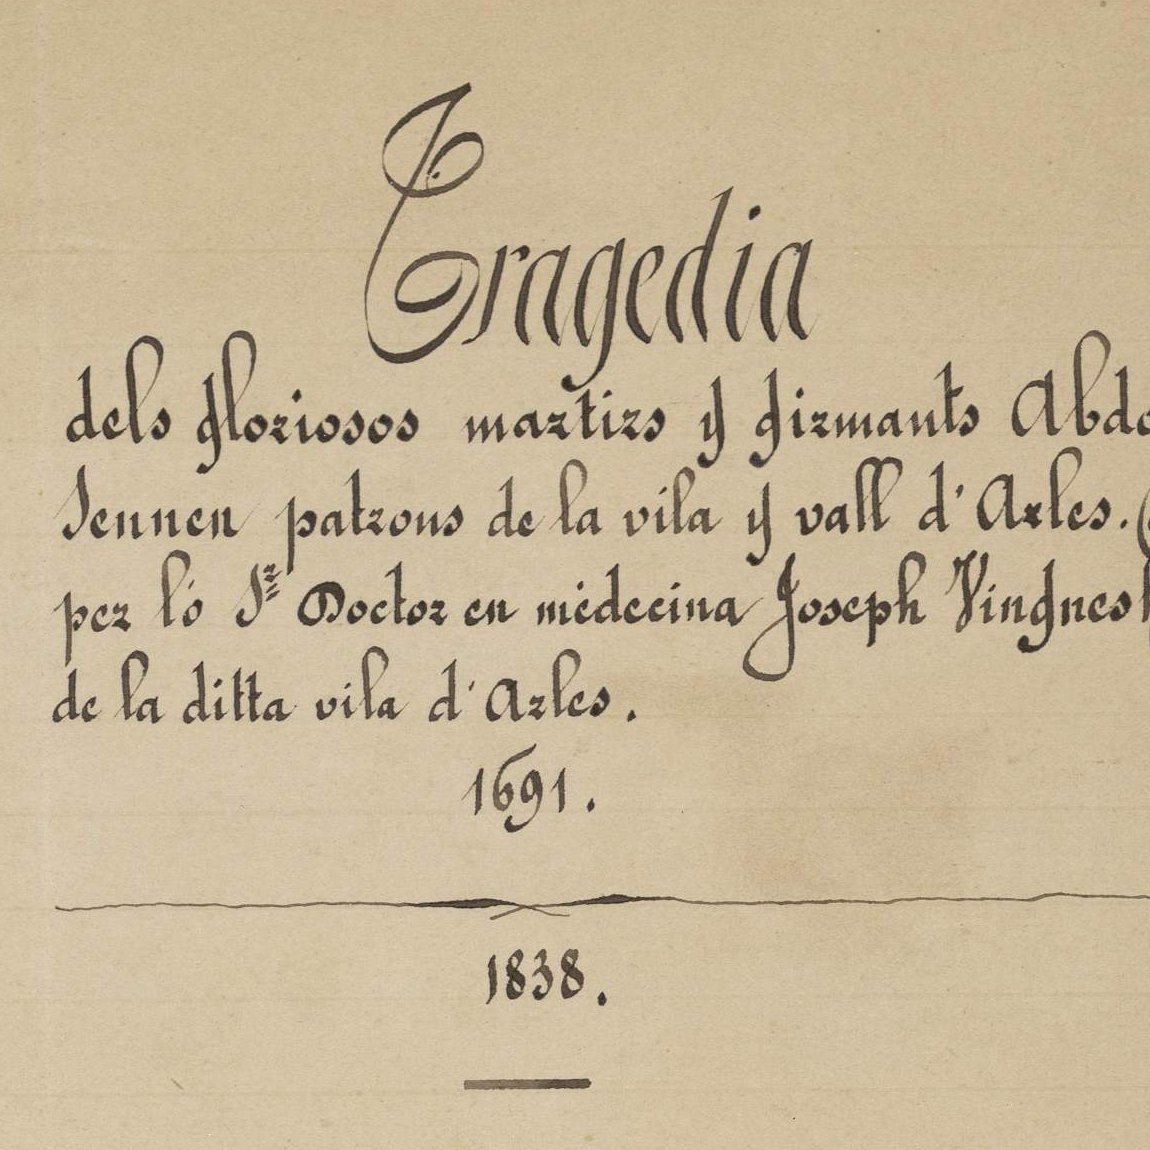 Tragedia
dels gloriosos martirs y girmants Abdo
Sennen patrons de la vila y vall d'Arles.
per ló Sr Doctor en médecina Joseph Vingnes
de la ditta vila d'Arles.
1691.
1838.